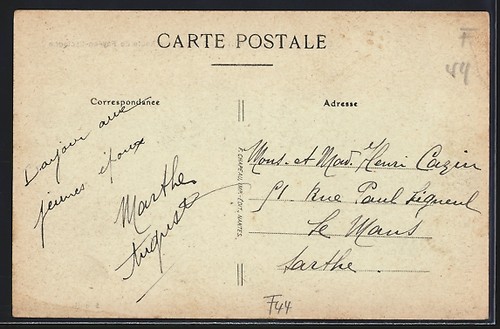 CARTE POSTALE
F
44
Correspondance
Adresse
Bonjour aux
jeunes époux
Marthe
Auguste
F. CHAPEAU, IMP.-EDIT., NANTES.
Mons. et Mad. Henri Cazin
51 Rue Paul Ligneul
Le Mans
Sarthe.
F44